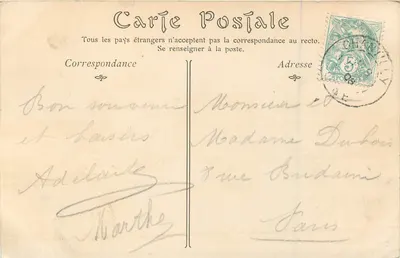 Carte Postale
Tous les pays étrangers n'acceptent pas la correspondance au recto.
Se renseigner à la poste.
Correspondance
Adresse
Bon souvenir
et baisers
Adelaïde
Marthe
Monsieur et
Madame Dubois
rue
Paris
5